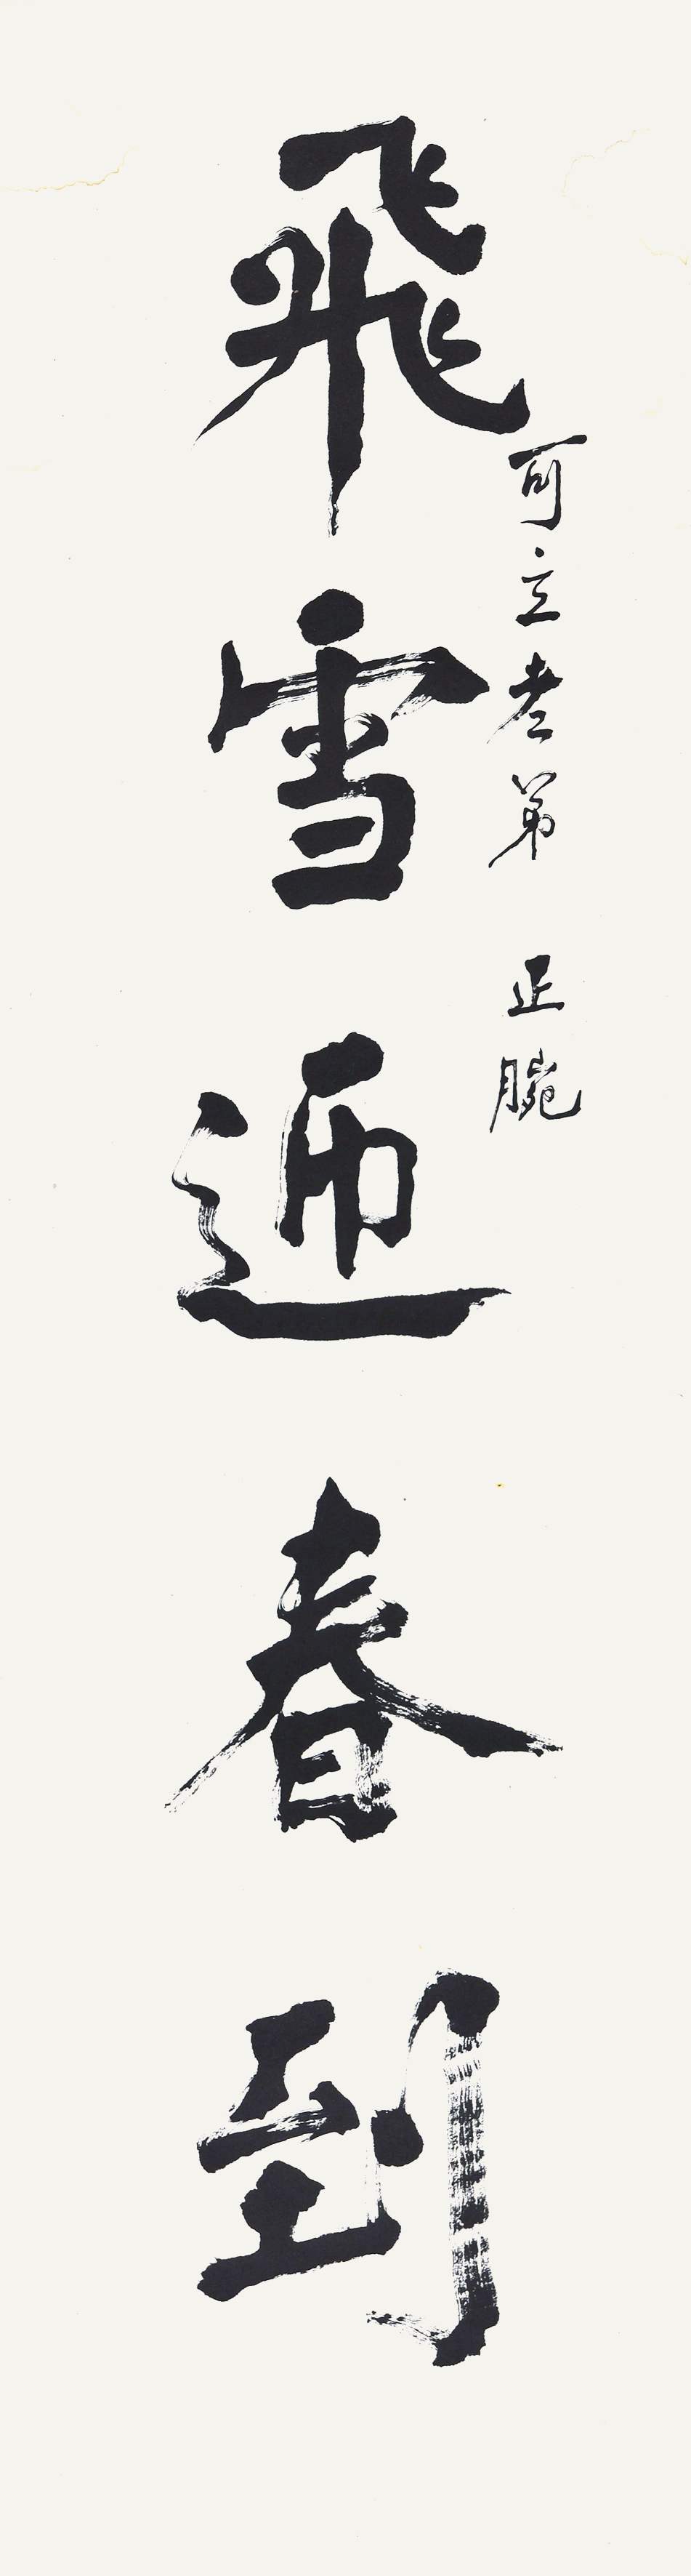 可立老弟 正腕
飛雪迎春到